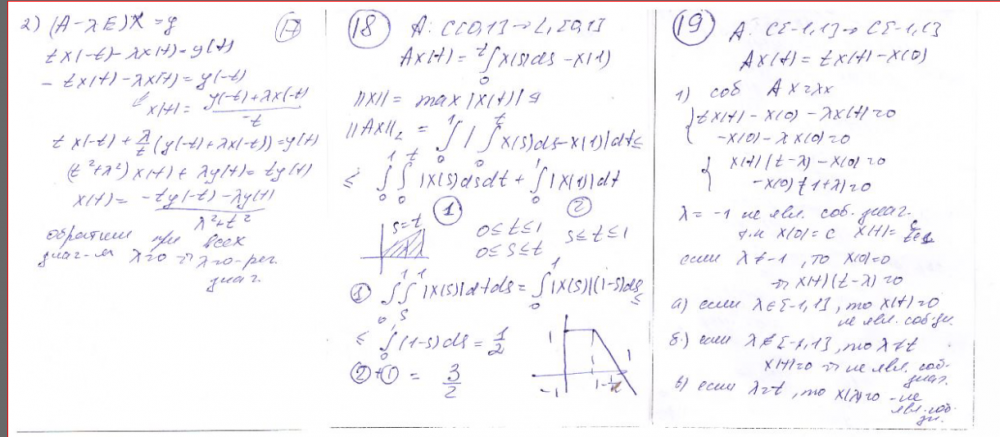 2) (A-λE)X = y
tx(-t) - λx(t) = y(t)
-tx(t) - λx(-t) = y(-t)
x(t) = (y(-t)+λx(-t))/(-t)
tx(-t) + λ/t (y(-t)+λx(-t)) = y(t)
(t²+λ²)x(t) + λy(t) = ty(t)
x(t) = (-ty(-t) - λy(t))/(λ²+t²)
обратим при всех
λ≠0 ⇒ λ=0 - рег.
знач.
17
18
A: C[0,1] → L₁[0,1]
Ax(t) = ∫₀ᵗ x(s)ds - x(1)
||x|| = max |x(t)|
||Ax||_L = ∫₀¹ | ∫₀ᵗ x(s)ds - x(1) | dt ≤
≤ ∫₀¹ ∫₀ᵗ |x(s)|dsdt + ∫₀¹ |x(1)|dt
① ②
s=t
0≤t≤1
0≤s≤t
s≤t≤1
① ∫₀¹ ∫ₛ¹ |x(s)|dtds = ∫₀¹ |x(s)|(1-s)ds ≤
≤ ∫₀¹ (1-s)ds = 1/2
②+① = 3/2
1
1
-1
19
A: C[-1,1] → C[-1,1]
Ax(t) = tx(t) - x(0)
1) соб Ax=λx
{ tx(t) - x(0) - λx(t) = 0
-x(0) - λx(0) = 0
{ x(t)(t-λ) - x(0) = 0
-x(0)(1+λ) = 0
λ = -1 не явл. соб. знач.
т.к x(0) = c x(t) =
если λ≠-1, то x(0)=0
⇒ x(t)(t-λ)=0
а) если λ∈[-1,1], то x(t)=0
не явл. соб. зн.
б) если λ∉[-1,1], то λ≠t
x(t)=0 ⇒ не явл. соб.
знач.
в) если λ=t, то x(λ)=0 - не
явл. соб.
зн.